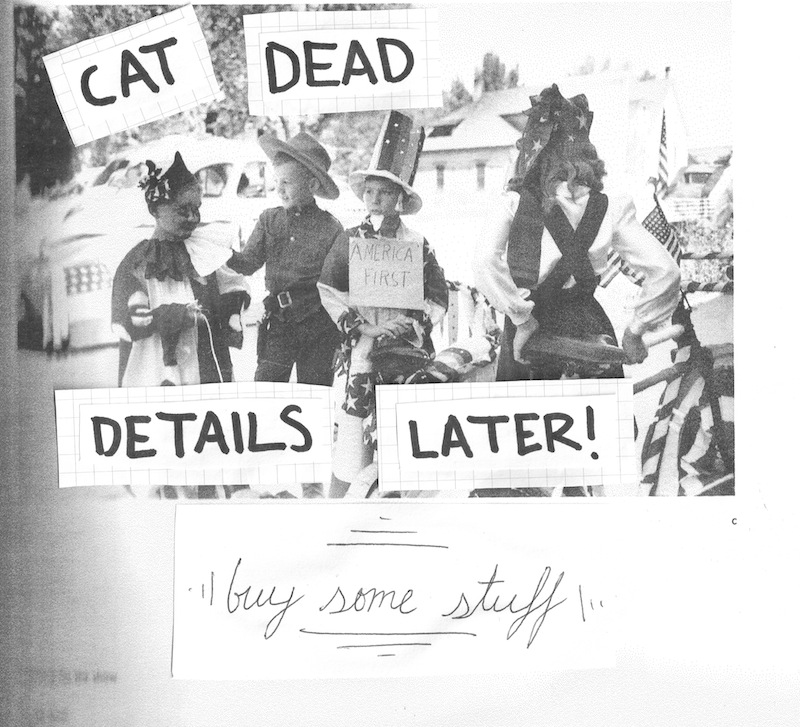 CAT DEAD
AMERICA
FIRST
DETAILS LATER!
buy some stuff
C